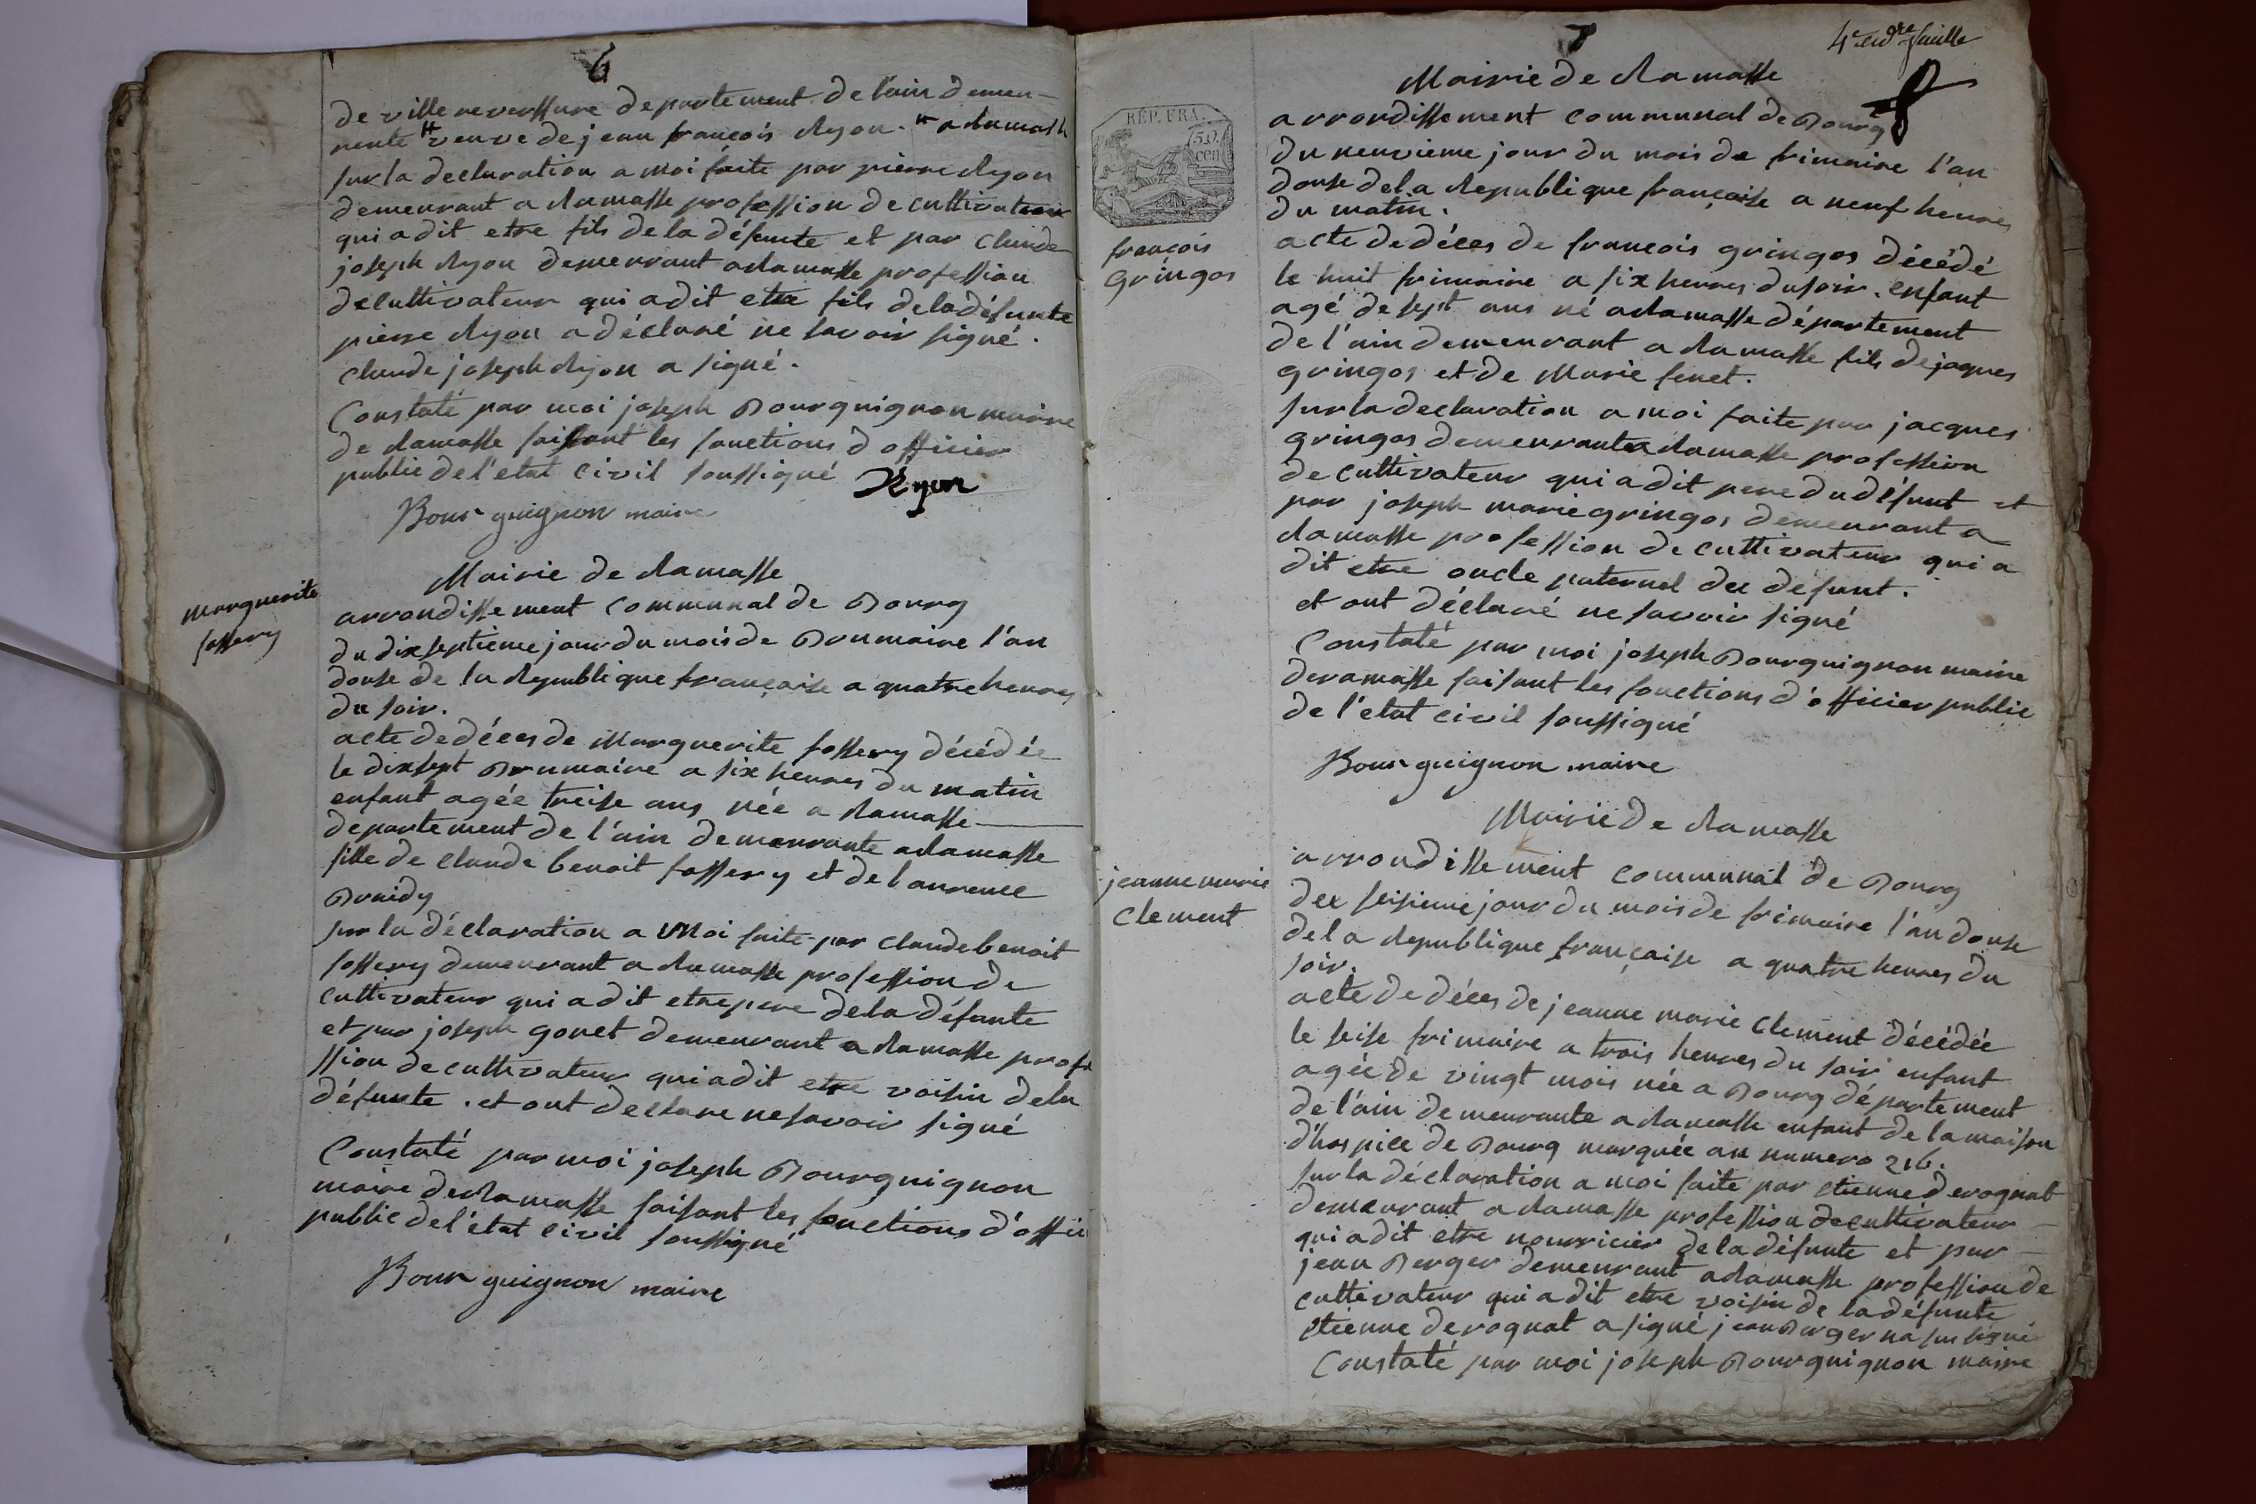 6
de ville reverssure departement de l'ain demeu-
rente # veuve de jean françois Ryon. # a Ramasse
sur la declaration a moi faite par pierre Ryon
demeurant a Ramasse profession de cultivateur
qui a dit etre fils de la défunte et par Claude
joseph Ryon demeurant a Ramasse profession
de cultivateur qui a dit etre fils de la défunte
pierre Ryon a déclaré ne savoir signé.
Claude joseph Ryon a signé.
Constaté par moi joseph Bourguignon maire
de Ramasse faisant les fonctions d officier
public de l'etat civil soussigné Ryon
Bourguignon maire
Mairie de Ramasse
Marguerite
fossery
arrondissement Communal de Bourg
du dix septieme jour du mois de Brumaire l'an
douse de la Republique française a quatre heures
du soir.
acte de déces de Marguerite fossery décédée
le dix sept Brumaire a six heures du matin
enfant agée treise ans née a Ramasse
departement de l'ain demeurante a Ramasse
fille de Claude benoit fossery et de Laurence
Bruidy
sur la déclaration a Moi faite par Claude benoit
fossery demeurant a Ramasse profession de
cultivateur qui a dit etre pere de la défunte
et par joseph gonet demeurant a Ramasse profe
ssion de cultivateur qui a dit etre voisin de la
défunte. et ont declare ne savoir signé
Constaté par moi joseph Bourguignon
maire de Ramasse faisant les fonctions d'offici
public de l'état civil soussigné
Bourguignon maire
7
4e et dre feuille
Mairie de Ramasse
RÉP. FRA.
50
cen
françois
gringos
arrondissement communal de Bourg
du neuvieme jour du mois de frimaire l'an
douse de la Republique française a neuf heures
du matin.
acte de déces de françois gringos décédé
le huit frimaire a six heures du soir. enfant
agé de sept ans né a Ramasse département
de l'ain demeurant a Ramasse fils de jaques
gringos et de Marie fenet.
sur la declaration a moi faite par jacques
gringos demeurant a Ramasse profession
de cultivateur qui a dit pere du défunt et
par joseph marie gringos demeurant a
Ramasse profession de cultivateur qui a
dit etre oncle paternel du défunt.
et ont déclaré ne savoir signé
Constaté par moi joseph Bourguignon maire
de ramasse faisant les fonctions d'officier public
de l'état civil soussigné
Bourguignon maire
Mairie de Ramasse
jeanne marie
Clement
arrondissement Communal de Bourg
du seisieme jour du mois de frimaire l'an douse
de la Republique française a quatre heures du
soir.
acte de déces de jeanne marie Clement décédée
le seise frimaire a trois heures du soir enfant
agée de vingt mois née a Bourg département
de l'ain demeurante a Ramasse enfant de la maison
d'hospice de Bourg marquée au numero 216.
sur la déclaration a moi faite par etienne derognat
demeurant a Ramasse profession de cultivateur
qui a dit etre nourricier de la défunte et par
jean Berger demeurant a Ramasse profession de
cultivateur qui a dit etre voisin de la défunte
etienne derognat a signé jean Berger na su signé
Constaté par moi joseph Bourguignon maire